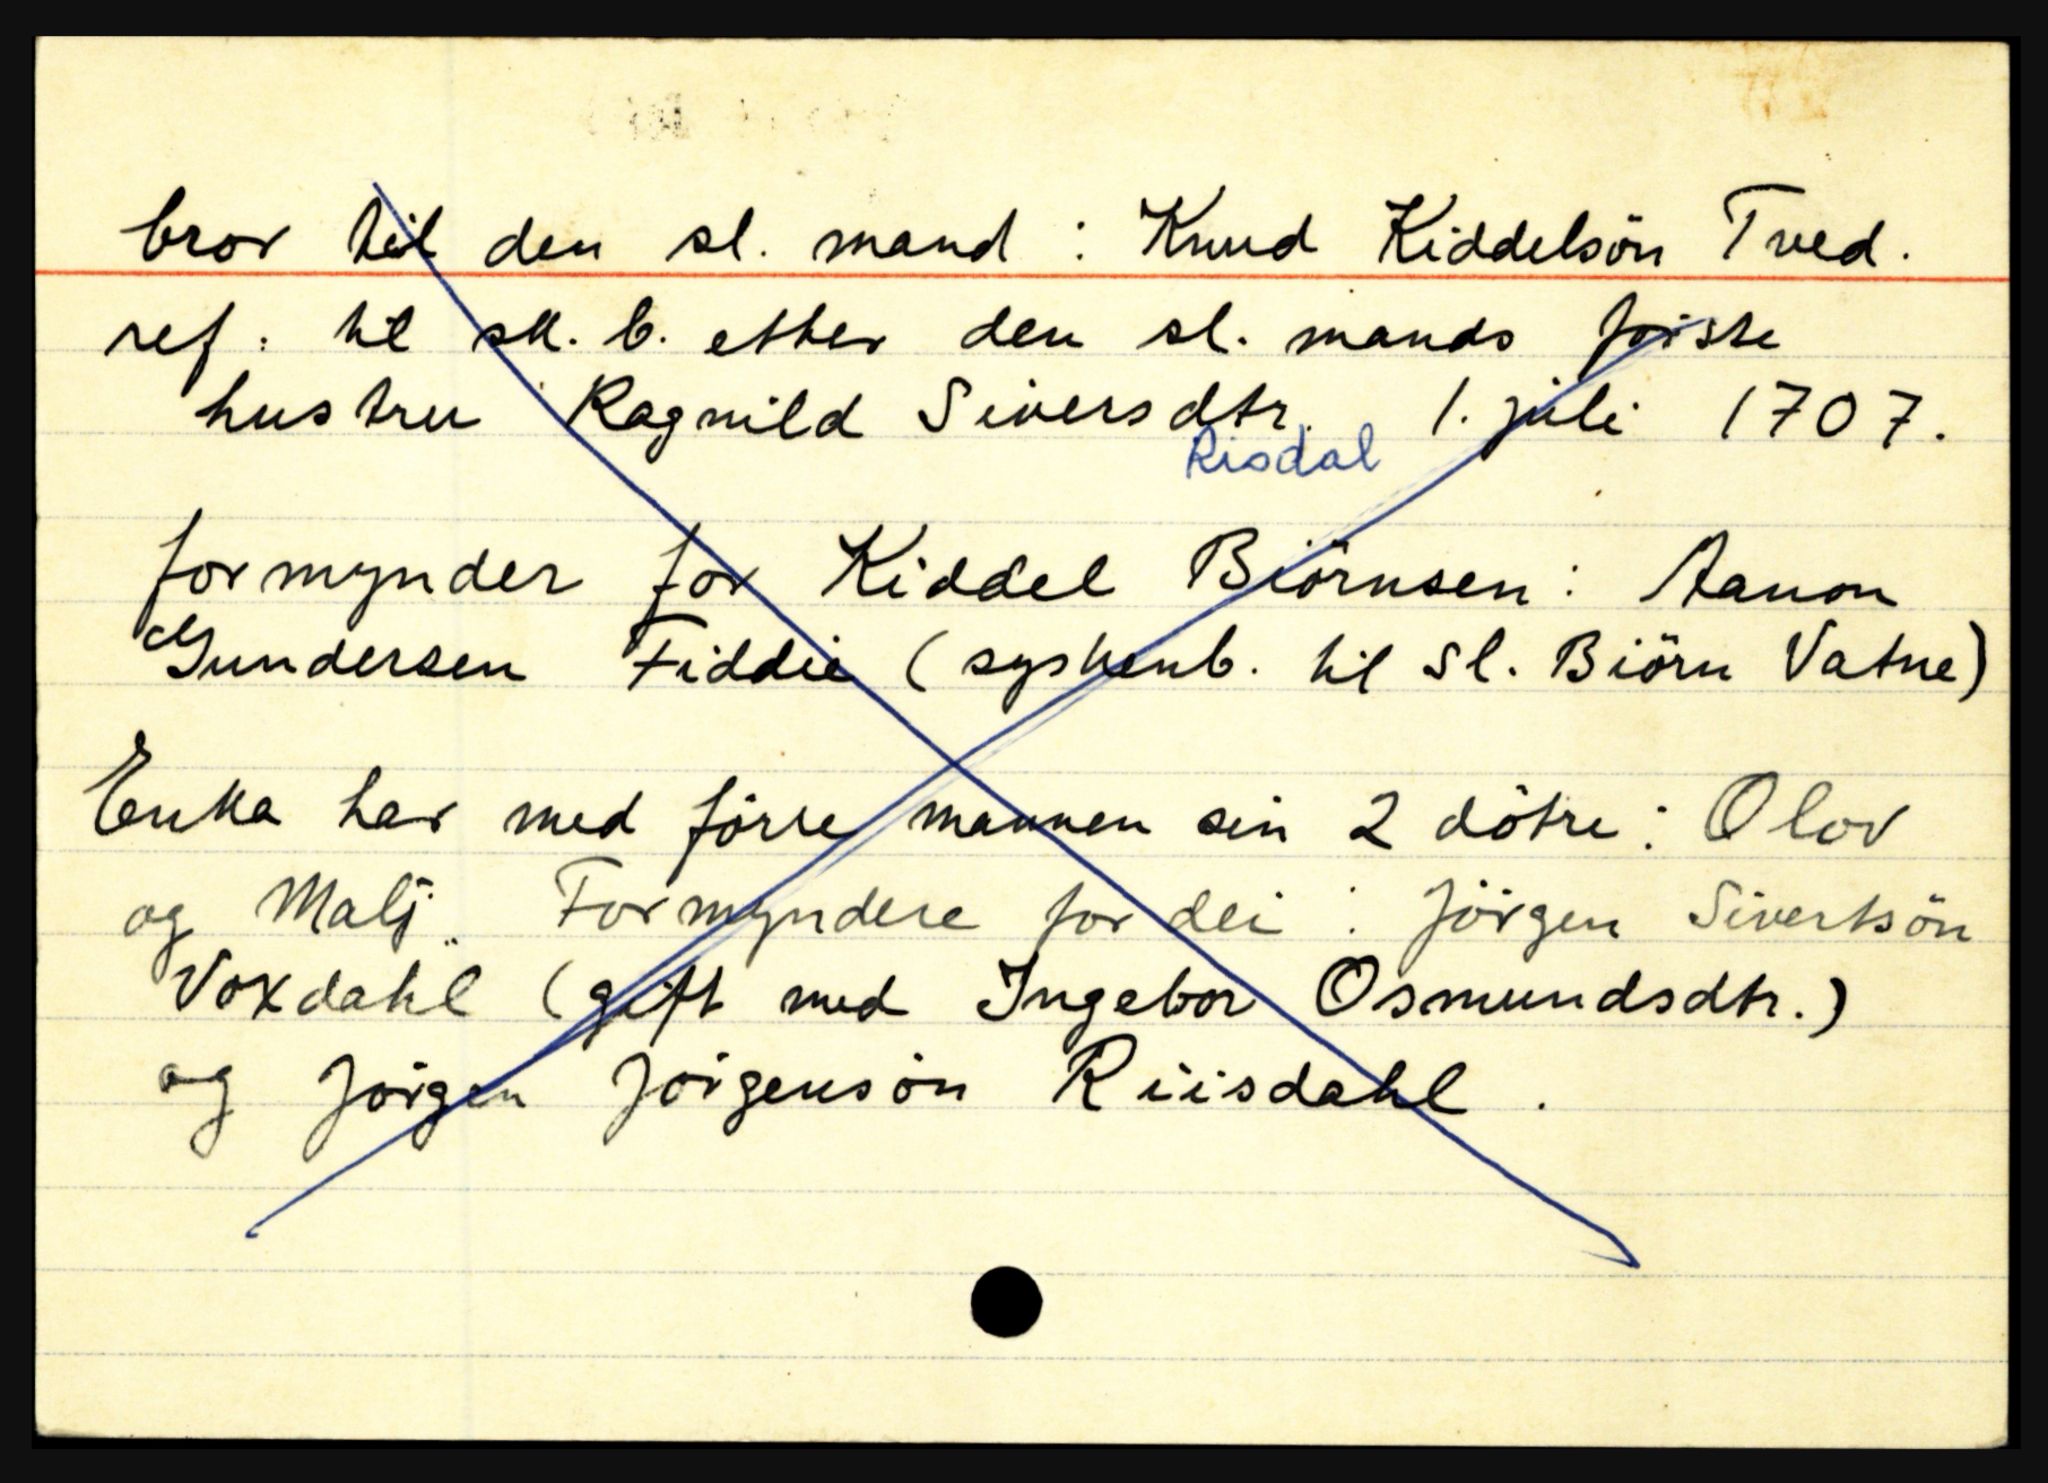 bror til den sl. mand : Knud Kiddelsön Tved.
ref : til sk. b. etter den sl. mands förste
hustru Ragnild Siversdtr. 1. juli 1707.
Risdal
formynder for Kiddel Biörnsen : Aanon
Gundersen Fiddie (syskenb. til Sl. Biörn Vatne)
Enka har med förre mannen sin 2 dötre : Olov
og Malj. Formyndere for dei : Jörgen Sivertsön
Voxdahl (gift med Ingebor Osmundsdtr.)
og Jörgen Jörgensön Riisdahl .